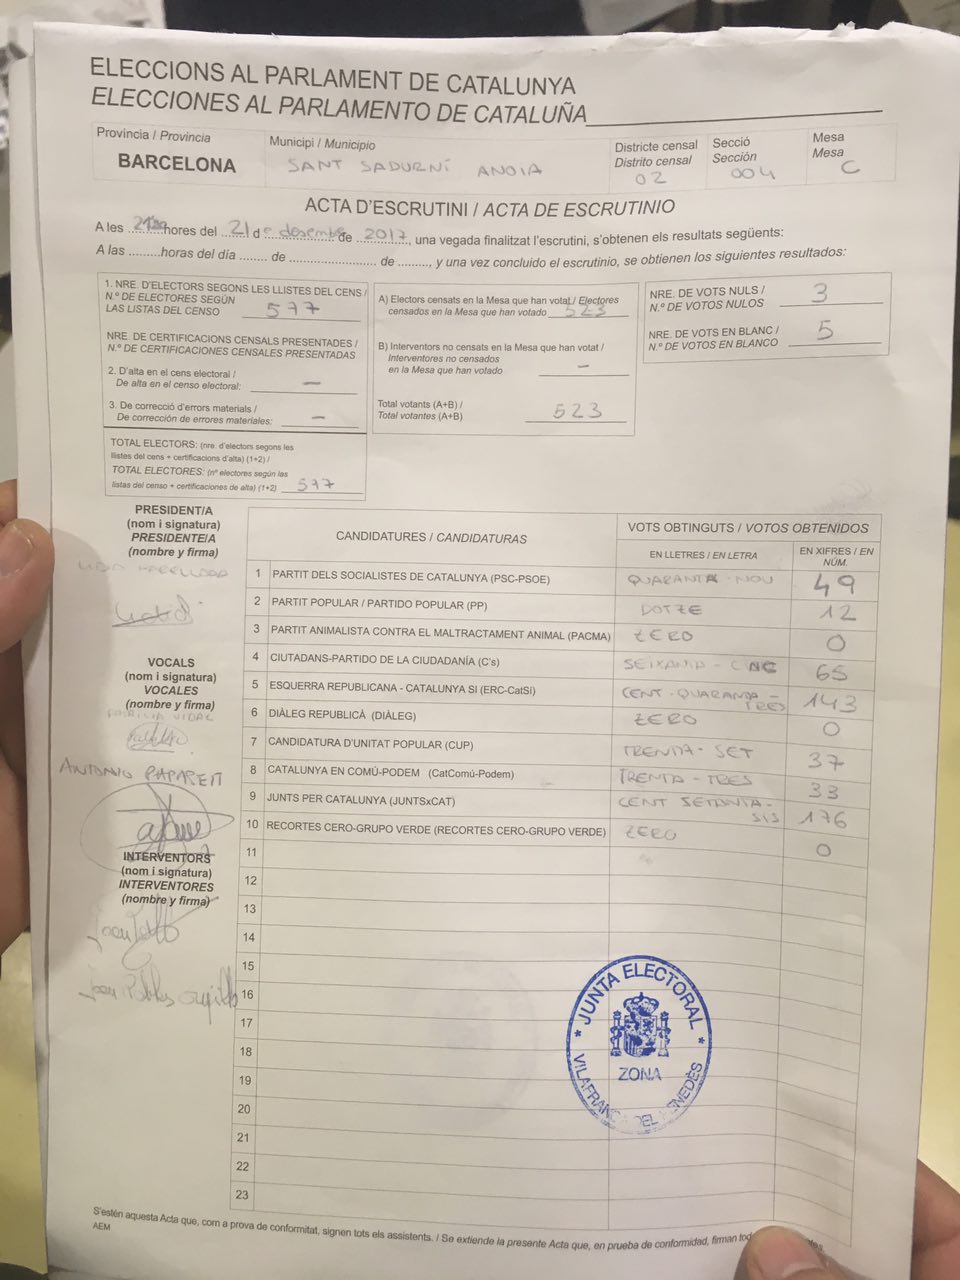 ELECCIONS AL PARLAMENT DE CATALUNYA
ELECCIONES AL PARLAMENTO DE CATALUÑA
Província / Provincia
BARCELONA
Municipi / Municipio
SANT SADURNÍ ANOIA
Districte censal
Distrito censal
02
Secció
Sección
004
Mesa
Mesa
C
ACTA D'ESCRUTINI / ACTA DE ESCRUTINIO
A les hores del 21 d e desembre de 2017, una vegada finalitzat l'escrutini, s'obtenen els resultats següents:
A las .........horas del día ........ de ......................... de ........., y una vez concluido el escrutinio, se obtienen los siguientes resultados:
1. NRE. D'ELECTORS SEGONS LES LLISTES DEL CENS /
N.º DE ELECTORES SEGÚN
LAS LISTAS DEL CENSO 577
NRE. DE CERTIFICACIONS CENSALS PRESENTADES /
N.º DE CERTIFICACIONES CENSALES PRESENTADAS
2. D'alta en el cens electoral /
De alta en el censo electoral: —
3. De correcció d'errors materials /
De corrección de errores materiales: —
TOTAL ELECTORS: (nre. d'electors segons les
llistes del cens + certificacions d'alta) (1+2) /
TOTAL ELECTORES: (nº electores según las
listas del censo + certificaciones de alta) (1+2) 577
A) Electors censats en la Mesa que han votat / Electores
censados en la Mesa que han votado 523
B) Interventors no censats en la Mesa que han votat /
Interventores no censados
en la Mesa que han votado —
Total votants (A+B) /
Total votantes (A+B) 523
NRE. DE VOTS NULS /
N.º DE VOTOS NULOS 3
NRE. DE VOTS EN BLANC /
N.º DE VOTOS EN BLANCO 5
PRESIDENT/A
(nom i signatura)
PRESIDENTE/A
(nombre y firma)
VOCALS
(nom i signatura)
VOCALES
(nombre y firma)
VIDAL
ANTONIO
INTERVENTORS
(nom i signatura)
INTERVENTORES
(nombre y firma)
CANDIDATURES / CANDIDATURAS
VOTS OBTINGUTS / VOTOS OBTENIDOS
EN LLETRES / EN LETRA
EN XIFRES / EN NÚM.
1 PARTIT DELS SOCIALISTES DE CATALUNYA (PSC-PSOE) QUARANTA-NOU 49
2 PARTIT POPULAR / PARTIDO POPULAR (PP) DOTZE 12
3 PARTIT ANIMALISTA CONTRA EL MALTRACTAMENT ANIMAL (PACMA) ZERO 0
4 CIUTADANS-PARTIDO DE LA CIUDADANÍA (C's) SEIXANTA-CINC 65
5 ESQUERRA REPUBLICANA - CATALUNYA SI (ERC-CatSí) CENT-QUARANTA-TRES 143
6 DIÀLEG REPUBLICÀ (DIÀLEG) ZERO 0
7 CANDIDATURA D'UNITAT POPULAR (CUP) TRENTA-SET 37
8 CATALUNYA EN COMÚ-PODEM (CatComú-Podem) TRENTA-TRES 33
9 JUNTS PER CATALUNYA (JUNTSxCAT) CENT SETANTA-SIS 176
10 RECORTES CERO-GRUPO VERDE (RECORTES CERO-GRUPO VERDE) ZERO 0
11
12
13
14
15
16
17
18
19
20
21
22
23
JUNTA ELECTORAL
ZONA
VILAFRANCA DEL PENEDÈS
S'estén aquesta Acta que, com a prova de conformitat, signen tots els assistents. / Se extiende la presente Acta que, en prueba de conformidad, firman
AEM